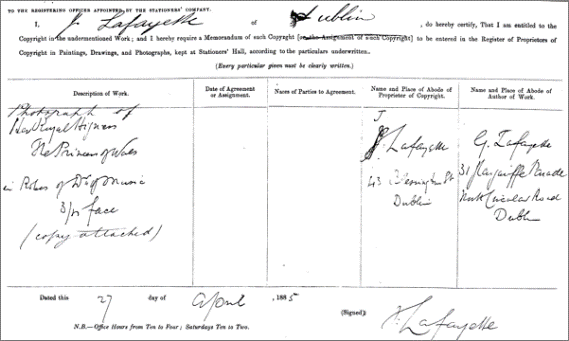 TO THE REGISTERING OFFICER APPOINTED BY THE STATIONERS' COMPANY.
I, J Lafayette of Dublin , do hereby certify, That I am entitled to the
Copyright in the undermentioned Work; and I hereby require a Memorandum of such Copyright [or the Assignment of such Copyright] to be entered in the Register of Proprietors of
Copyright in Paintings, Drawings, and Photographs, kept at Stationers' Hall, according to the particulars underwritten.
(Every particular given must be clearly written.)
Description of Work.
Date of Agreement
or Assignment.
Names of Parties to Agreement.
Name and Place of Abode of
Proprietor of Copyright.
Name and Place of Abode of
Author of Work.
Photograph of
Her Royal Higness
The Princess of Wales
in Robes of Dr of Music
3/4 face
(copy attached)
J
Lafayette
Dublin
G. Lafayette
31 Parade
North Circular Road
Dublin
Dated this 27 day of April , 1885
(Signed) J. Lafayette
N.B.—Office Hours from Ten to Four; Saturdays Ten to Two.